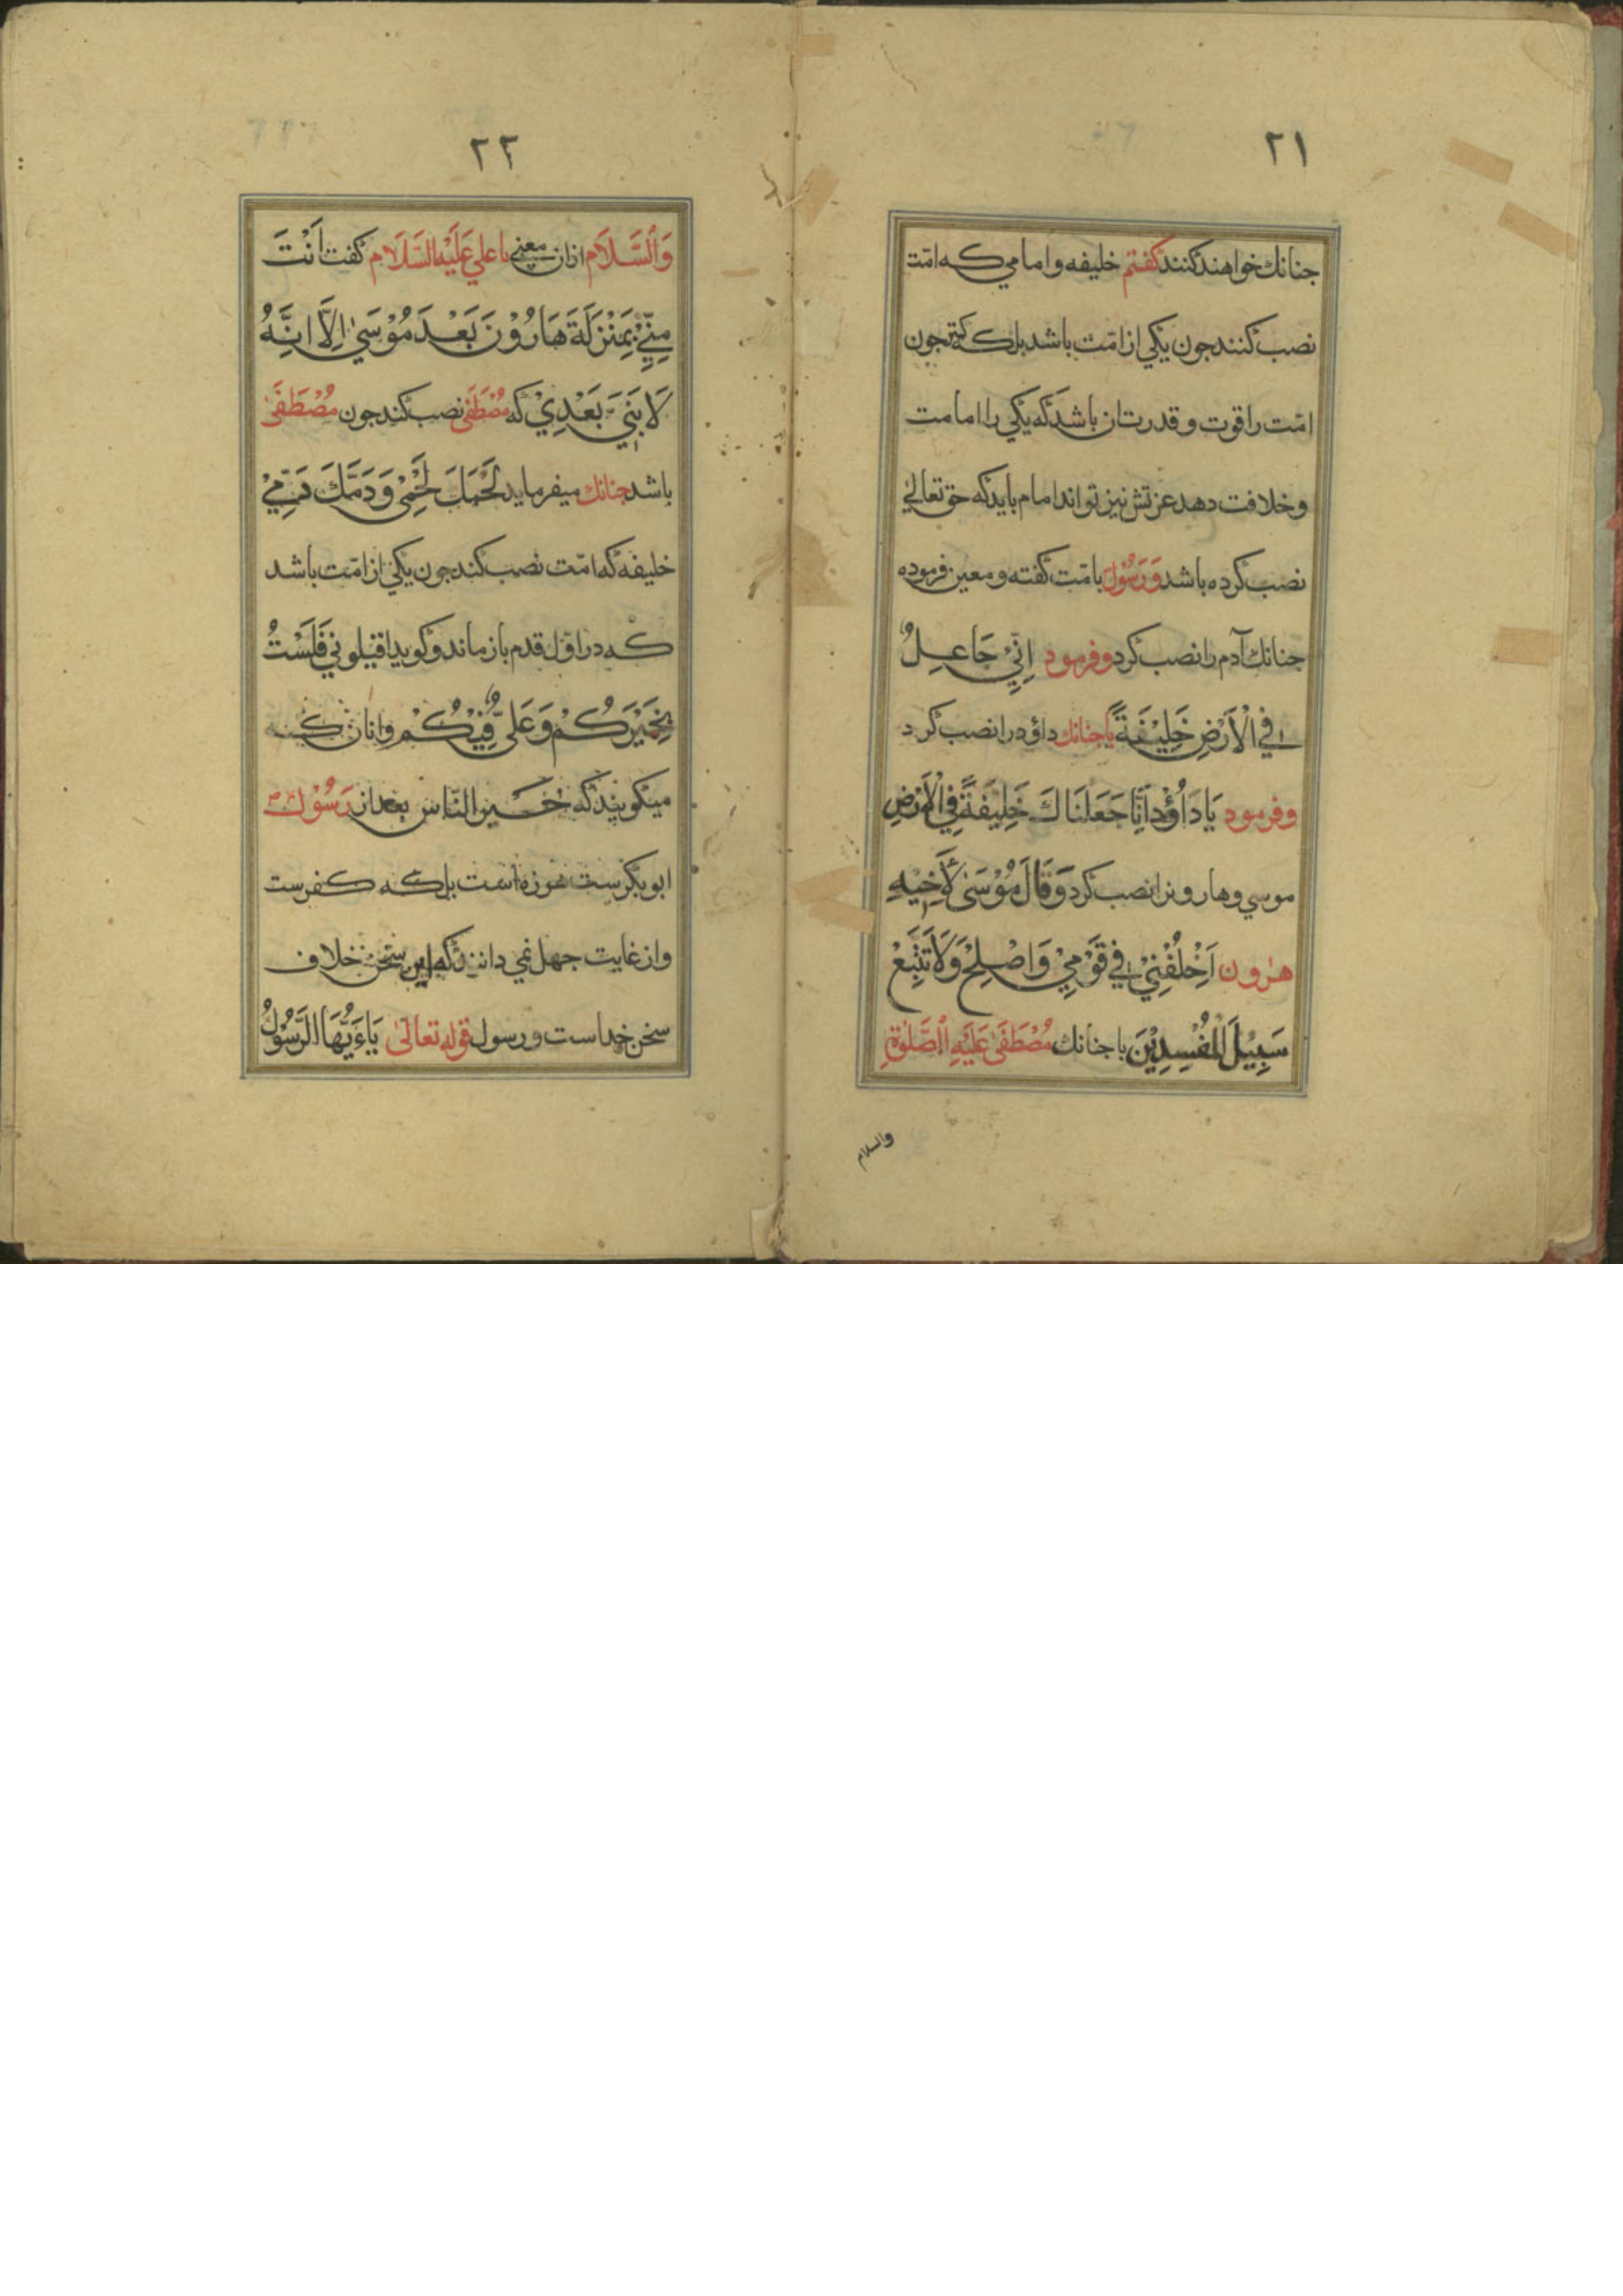 ٢١
جنانك خواهند كنند كفتم خليفه و امامي كه امّت
نصب كنند جون يكي از امّت باشد بلكه كمتر جون
امّت را قوت و قدرت ان باشد كه يكي را امامت
و خلافت دهد عزتش نيز تواند امام بايد كه حق تعالي
نصب كرده باشد وَ رَسُوْل با مّت كفته و معين فرموده
جنانك آدم را نصب كرد و فرمود اِنِّيْ جَاعِلٌ
فِي الْاَرْضِ خَلِيْفَةً يا جنانك داؤد را نصب كرد
و فرمود يَا دَاُوْدُ اِنَّا جَعَلْنَاكَ خَلِيْفَةً فِي الْاَرْضِ
موسي و هارونرا نصب كرد وَ قَالَ مُوْسَىٰ لِاَخِيْهِ
هٰرون اَخْلُفْنِيْ فِي قَوْمِيْ وَ اَصْلِحْ وَ لَا تَتَّبِعْ
سَبِيْلَ الْمُفْسِدِيْنَ يا جنانك مُصْطَفَىٰ عَلَيْهِ الصَّلٰوةِ
والسلام
٢٢
وَ السَّلَام ازان معنى با علي عَلَيْهِ السَّلَام كفت اَنْتَ
مِنِّيْ بِمَنْزِلَةَ هَارُوْنَ بَعْدَ مُوْسَىٰ اِلَّا اِنَّهُ
لَا نَبِيَّ بَعْدِيْ كه مُصْطَفَى نصب كند جون مُصْطَفَىٰ
باشد جنانك ميفرمايد لَحْمَكَ لَحْمِىْ وَ دَمَّكَ دَمِّيْ
خليفه كه امّت نصب كند جون يكي از امّت باشد
كه در اوّل قدم باز ماند و كويد اقيلوني فَلَسْتُ
بِخَيْرِكُمْ وَ عَلىٌّ فِيْكُمْ و انان كه
ميكويند كه خير النّاس بعد از رَسُوْل
ابوبكرست هرزه است بلكه كفرست
و از غايت جهل نمي دانند كه اين سخن خلاف
سخن خداست و رسول قوله تعالىٰ يَاءَيُّهَا الرَّسُوْلُ